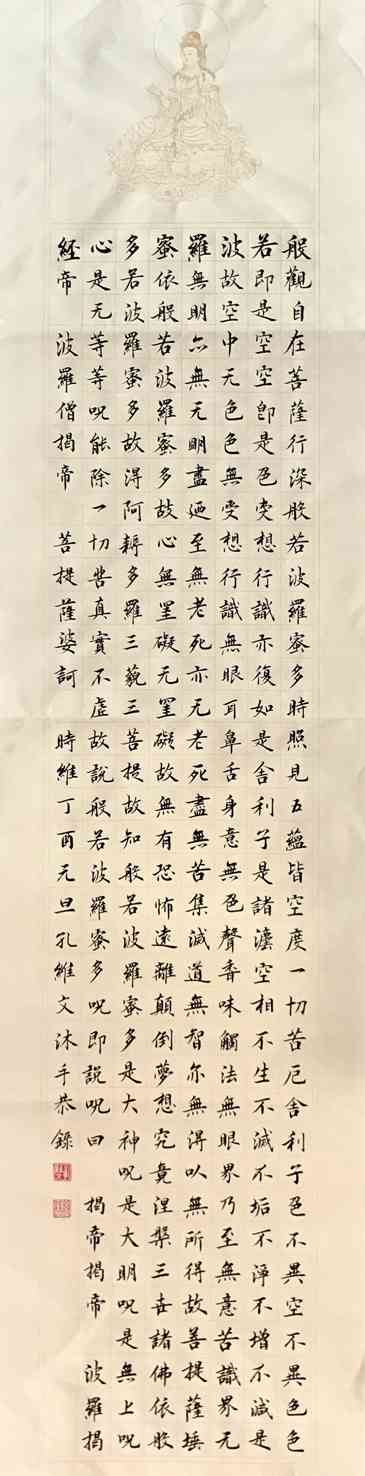 般若波羅蜜多心經
觀自在菩薩行深般若波羅蜜多時照見五蘊皆空度一切苦厄舍利子色不異空不異色色
即是空空卽是色受想行識亦復如是舍利子是諸灋空相不生不滅不垢不淨不增不減是
故空中无色色無受想行識無眼耳鼻舌身意無色聲香味觸法無眼界乃至無意苦識界无
無明亦無无明盡廼至無老死亦无老死盡無苦集滅道無智亦無得以無所得故菩提薩埵
依般若波羅蜜多故心無罣礙无罣礙故無有恐怖遠離顛倒夢想究竟涅槃三世諸佛依般
若波羅蜜多故得阿耨多羅三藐三菩提故知般若波羅蜜多是大神呪是大明呪是無上呪
是无等等呪能除一切苦真實不虛故說般若波羅蜜多呪即說呪曰 揭帝揭帝 波羅揭
帝 波羅僧揭帝 菩提薩婆訶 時維丁酉元旦孔維文沐手恭錄